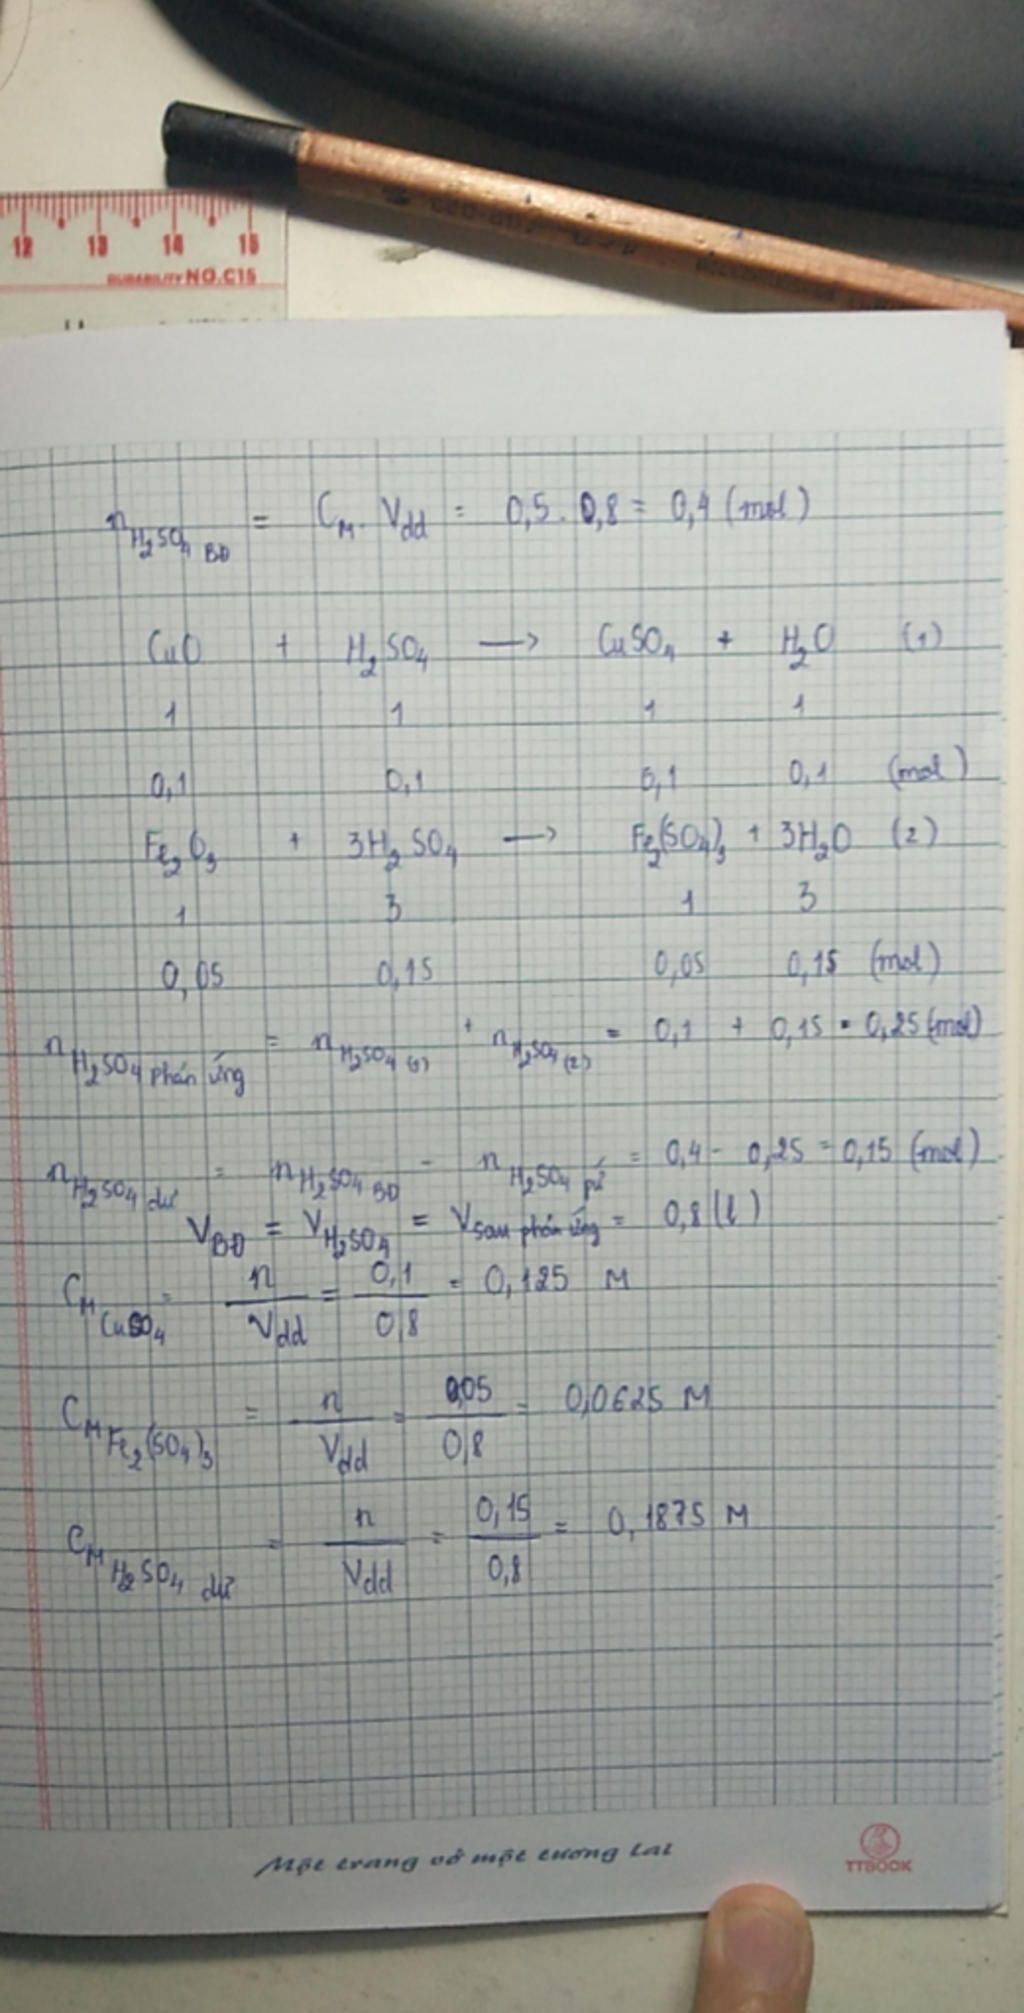 12 13 14 15
DURABILITY NO.C15
n H₂SO₄ BĐ = C_M . V_dd = 0,5 . 0,8 = 0,4 (mol)
CuO + H₂SO₄ → CuSO₄ + H₂O (1)
1 1 1 1
0,1 0,1 0,1 0,1 (mol)
Fe₂O₃ + 3H₂SO₄ → Fe₂(SO₄)₃ + 3H₂O (2)
1 3 1 3
0,05 0,15 0,05 0,15 (mol)
n H₂SO₄ phản ứng = n H₂SO₄ (1) + n H₂SO₄ (2) = 0,1 + 0,15 = 0,25 (mol)
n H₂SO₄ dư = n H₂SO₄ BĐ - n H₂SO₄ pứ = 0,4 - 0,25 = 0,15 (mol)
V BĐ = V H₂SO₄ = V sau phản ứng = 0,8 (l)
C_M CuSO₄ = n / V_dd = 0,1 / 0,8 = 0,125 M
C_M Fe₂(SO₄)₃ = n / V_dd = 0,05 / 0,8 = 0,0625 M
C_M H₂SO₄ dư = n / V_dd = 0,15 / 0,8 = 0,1875 M
Một trang vở một tương lai
TTBOOK